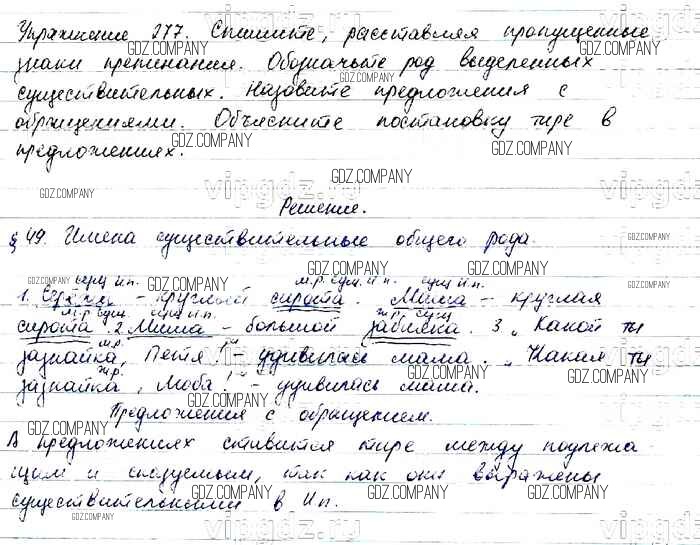 Упражнение 277. Спишите, расставляя пропущенные
знаки препинания. Обозначьте род выделенных
существительных. Назовите предложения с
обращениями. Объясните постановку тире в
предложениях.
Решение.
§ 49. Имена существительные общего рода.
сущ и п. м.р. сущ. и п. сущ и п.
1. – круглый сирота. Миша – круглая
м.р. сущ. сущ и п. ж.р. сущ
сирота. 2. Миша – большой забияка. 3. „Какой ты
м.р.
зазнайка, Петя!" – удивилась мама. „Какая ты
ж.р.
зазнайка, Люба!" – удивилась мама.
Предложения с обращением.
В предложениях ставится тире между подлежа
щим и сказуемым, так как они выражены
существительными в И п.
GDZ.COMPANY
vipgdz.ru